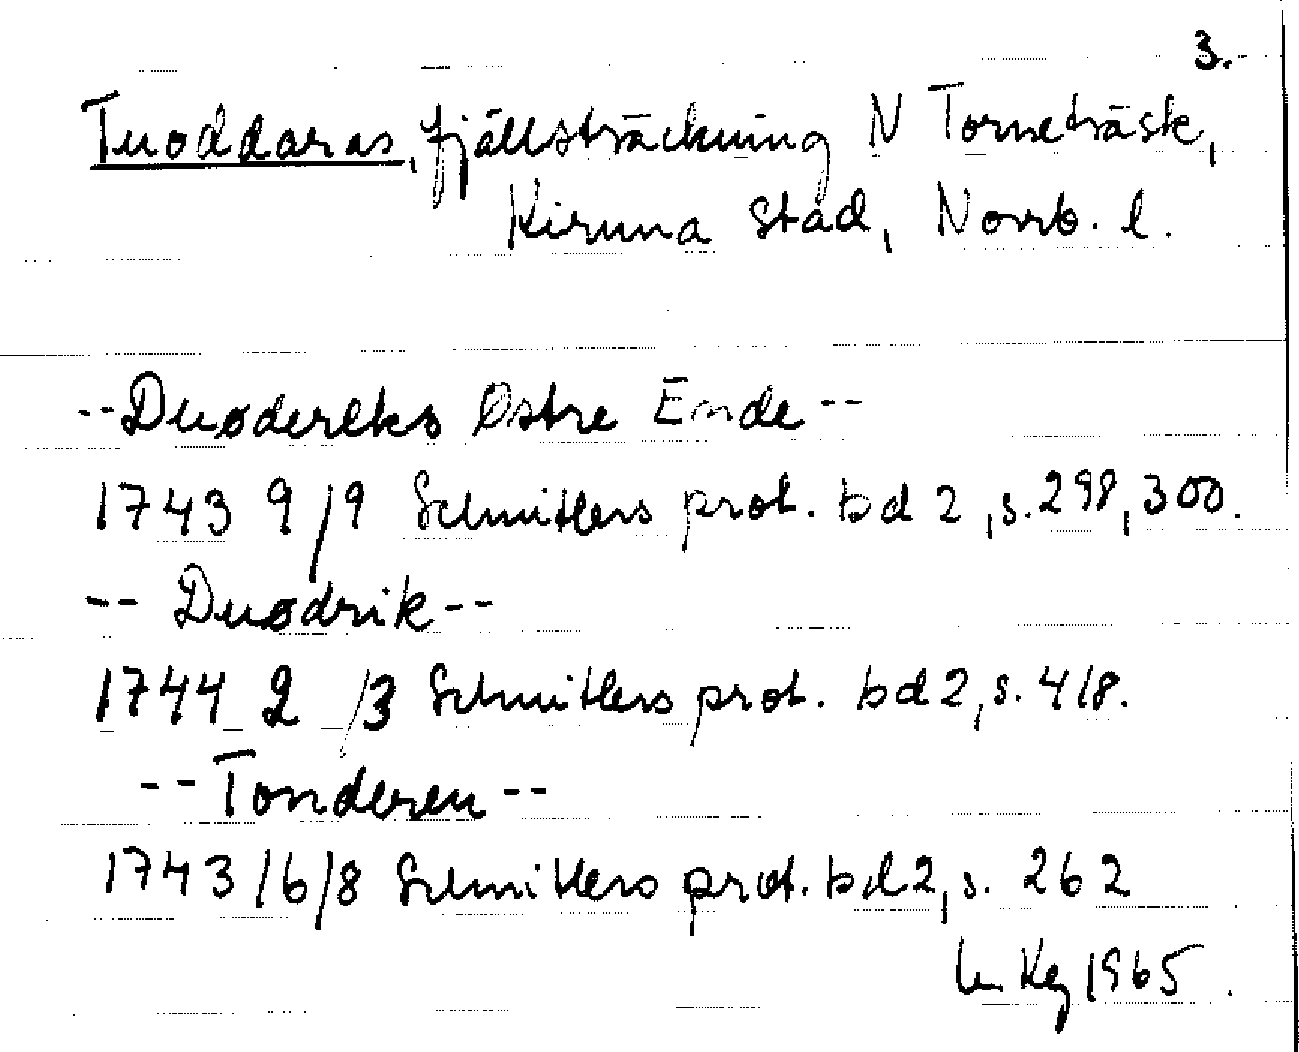 3.
Tuoddaras, fjällsträckning N Torneträsk,
Kiruna stad, Norrb. l.
--Duøderelks Østre Ende--
1743 9/9 Schnitlers prot. bd 2, s. 298, 300.
-- Duødrik--
1744 2/3 Schnitlers prot. bd 2, s. 418.
--Tonderen--
1743 16/8 Schnitlers prot. bd 2, s. 262
1965.